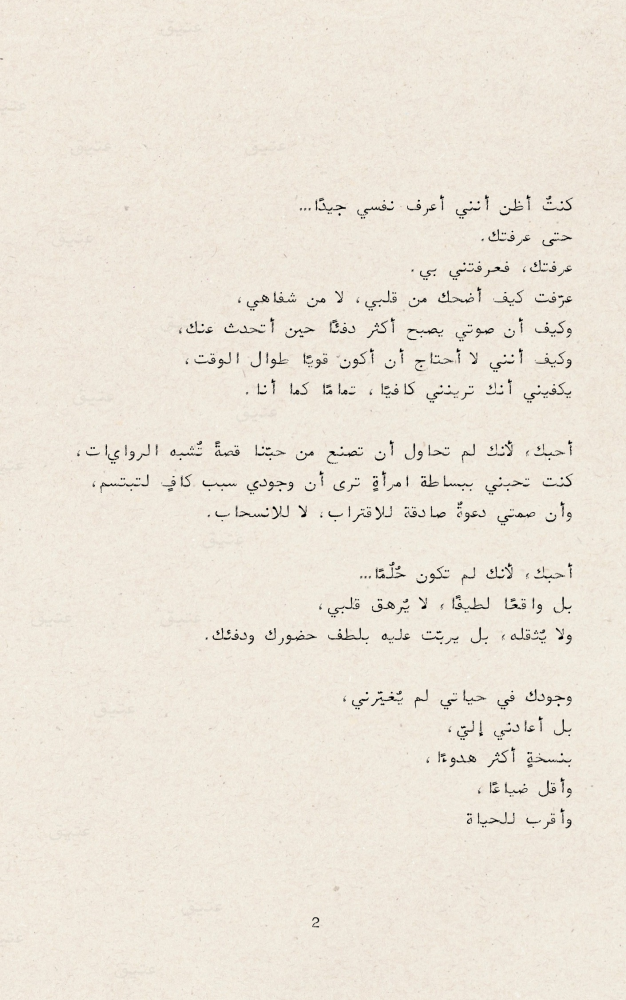 كنتُ أظن أنني أعرف نفسي جيدًا...
حتى عرفتك.
عرفتك، فعرفتني بي.
عرّفت كيف أضحك من قلبي، لا من شفاهي،
وكيف أن صوتي يصبح أكثر دفئًا حين أتحدث عنك،
وكيف أنني لا أحتاج أن أكون قويًا طوال الوقت،
يكفيني أنك ترينني كافيًا، تمامًا كما أنا.
أحبك، لأنك لم تحاول أن تصنع من حبّنا قصةً تُشبه الروايات،
كنت تحبني ببساطة امرأةٍ ترى أن وجودي سبب كافٍ لتبتسم،
وأن صمتي دعوةٌ صادقة للاقتراب، لا للانسحاب.
أحبك، لأنك لم تكون حُلُمًا...
بل واقعًا لطيفًا، لا يُرهق قلبي،
ولا يُثقله، بل يربّت عليه بلطف حضورك ودفئك.
وجودك في حياتي لم يُغيّرني،
بل أعادني إليّ،
بنسخةٍ أكثر هدوءًا،
وأقل ضياعًا،
وأقرب للحياة
2